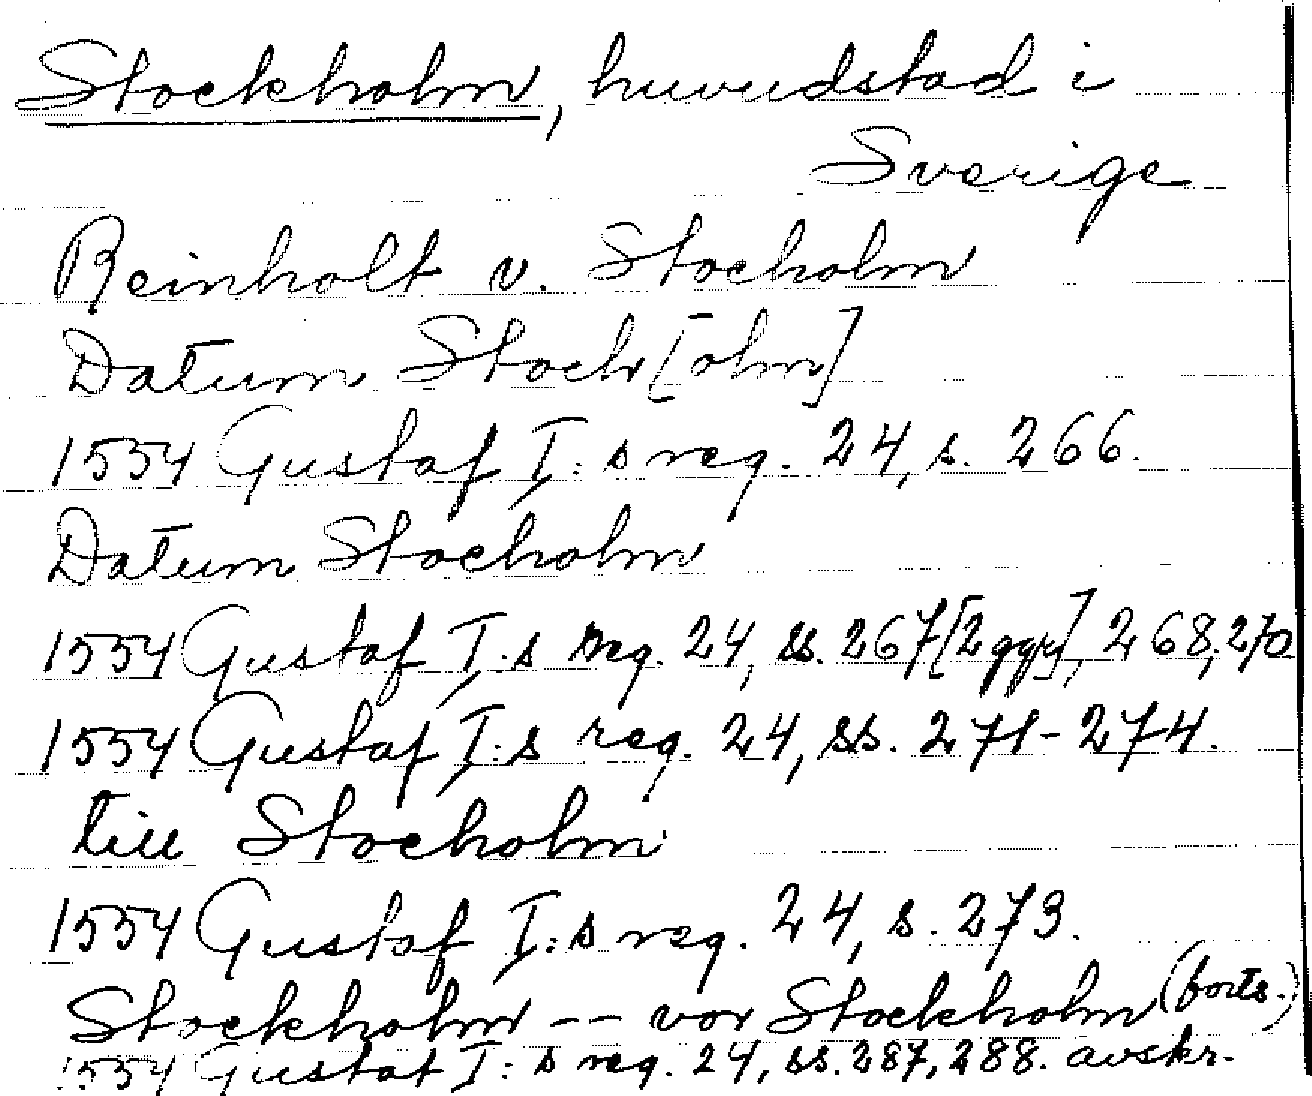 Stockholm, huvudstad i
Sverige
Reinholt v. Stocholm
Datum Stoch[olm]
1554 Gustaf I:s reg. 24, s. 266.
Datum Stocholm
1554 Gustaf I:s reg. 24, ss. 267[2 ggr], 268, 270
1554 Gustaf I:s reg. 24, ss. 271-274.
till Stocholm
1554 Gustaf I:s reg. 24, s. 273.
Stockholm -- vor Stockholm (forts.)
1554 Gustaf I:s reg. 24, ss. 287, 288. avskr.